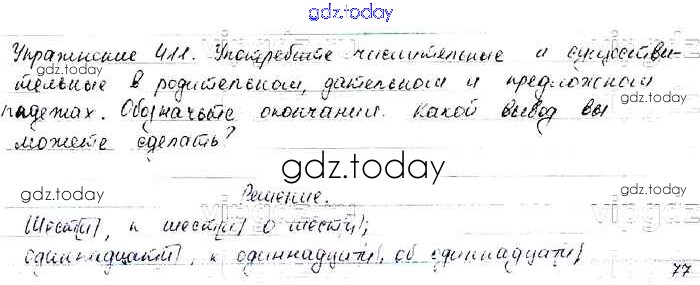 gdz.today
Упражнение 411. Употребите числительные и существи-
gdz.today
тельные в родительном, дательном и предложном
падежах. Обозначьте окончания. Какой вывод вы
можете сделать?
gdz.today
gdz.today
Решение.
Шест[и], к шест[и] о шест[и];
одиннадцат[и], к одиннадцат[и], об одиннадцат[и],
gdz.today
77